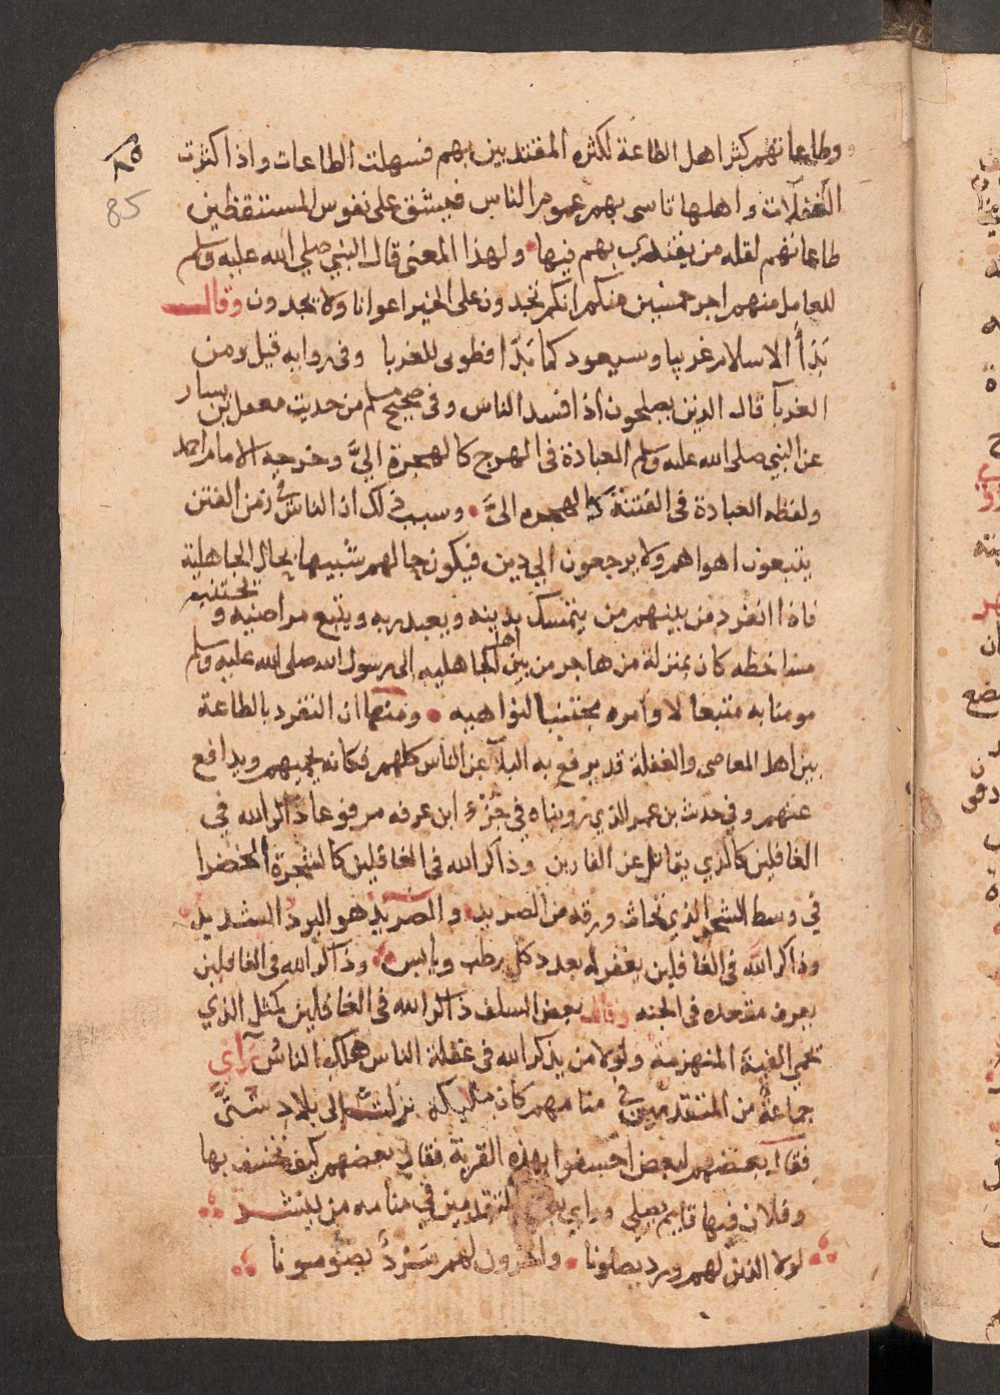 ٨٥
85
وطاعاتهم كثر اهل الطاعة لكثره المقتدين بهم فسهلت الطاعات واذا كثرت
الغفلات واهلها تاسى بهم عموم الناس فيشق على نفوس المستيقظين
طاعاتهم لقله من يقتدى بهم فيها ولهذا المعنى قال النبي صلي الله عليه وسلم
للعامل منهم اجر خمسين منكم انكم تجدون على الخير اعوانا ولا يجدون وقال
بَدَأَ الاسلام غريبا وسيعود كما بَدَا فطوبى للغربا وفى روايه قيل ومن
الغربآ قال الذين يصلحون اذا افسد الناس وفى صحيح مسلم من حديث معقل بن يسار
عن النبي صلى الله عليه وسلم العبادة فى الهرج كالهجرة اليَّ وخرجه الامام احمد
ولفظه العبادة فى الفتنة كالهجره الىَّ وسبب ذلك ان الناس في زمن الفتن
يتبعون اهواهم ولا يرجعون الي دين فيكون حالهم شبيها بحال الجاهلية
فاذا انفرد من بينهم من يتمسك بدينه ويعبد ربه ويتبع مراضيه ويجتنب
مساخطه كان بمنزلة من هاجر من بين اهل الجاهليه الى رسول الله صلى الله عليه وسلم
مومنا به متبعا لاوامره مجتنبا لنواهيه ومنها ان التفرد بالطاعة
بين اهل المعاصى والغفلة قد يرفع به البلآ عن الناس كلهم فكانه يحميهم ويدافع
عنهم وفى حدث بن عمر الذي رويناه في جُزْءِ ابن عرفه مرفوعا ذاكر الله في
الغافلين كالذي يقاتل عن الفارين وذاكر الله فى الغافلين كالشجرة الخضرا
في وسط الشجر الذي تحات ورقه من الصريد والصريد هو البرد الشديد
وذاكر الله فى الغافلين يغفر له بعدد كل رطب ويابس وذاكر الله فى الغافلين
يعرف مقعده فى الجنه وقال بعض السلف ذاكر الله فى الغافلين كمثل الذي
يحمي الفية المنهزمة ولولا من يذكر الله فى غفلة الناس هلك الناس رَآي
جماعة من المتقدمين في منامهم كان مليكة نزلت الى بلاد شتى
فقال بعضهم لبعض اخسفوا بهذه القرية فقال بعضهم كيف نخسف بها
وفلان فيها قايم يصلي وراي بعض المتقدمين في منامه من ينشد
لولا الذين لهم ورد يصلونا واخرون لهم سَرْدٌ يصومونا